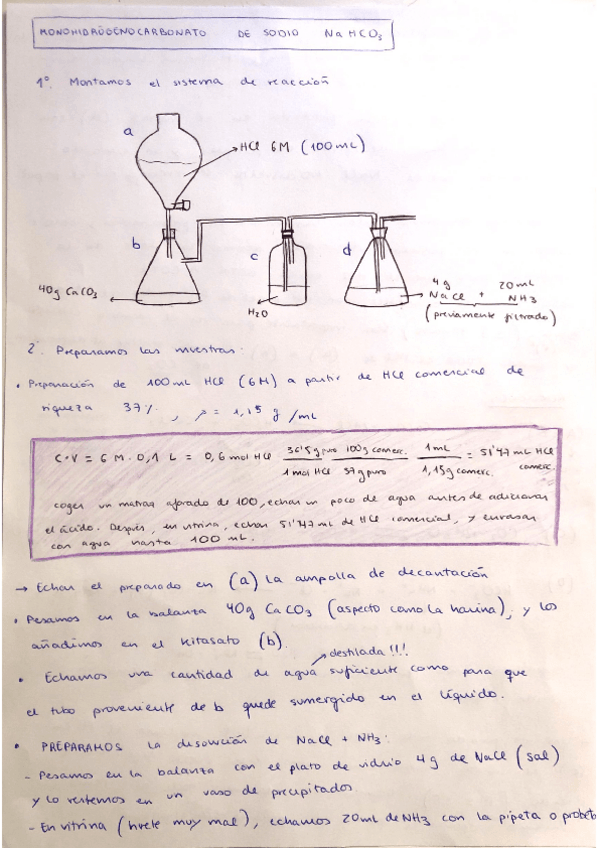 MONOHIDRÓGENOCARBONATO DE SODIO NaHCO3
1º. Montamos el sistema de reacción
a
HCl 6M (100mL)
b
c
d
40g CaCO3
H2O
4g NaCl + 20mL NH3
(previamente filtrado)
2º. Preparamos las muestras:
• Preparación de 100mL HCl (6M) a partir de HCl comercial de
riqueza 37%, ρ = 1,15 g/mL
C·V = 6M·0,1 L = 0,6mol HCl 36'5g puro 100g comerc. 1mL = 51'47mL HCl
1mol HCl 37g puro 1,15g comerc. comerc.
coger un matraz aforado de 100, echar un poco de agua antes de adicionar
el ácido. Después, en vitrina, echar 51'47mL de HCl comercial, y enrasar
con agua hasta 100mL.
→ Echar el preparado en (a) la ampolla de decantación
• Pesamos en la balanza 40g CaCO3 (aspecto como la harina), y los
añadimos en el kitasato (b).
destilada !!!
• Echamos una cantidad de agua suficiente como para que
el tubo proveniente de b quede sumergido en el líquido.
• PREPARAMOS la disolución de NaCl + NH3:
- Pesamos en la balanza con el plato de vidrio 4g de NaCl (sal)
y lo vertemos en un vaso de precipitados
- En vitrina (huele muy mal), echamos 20mL de NH3 con la pipeta o probeta